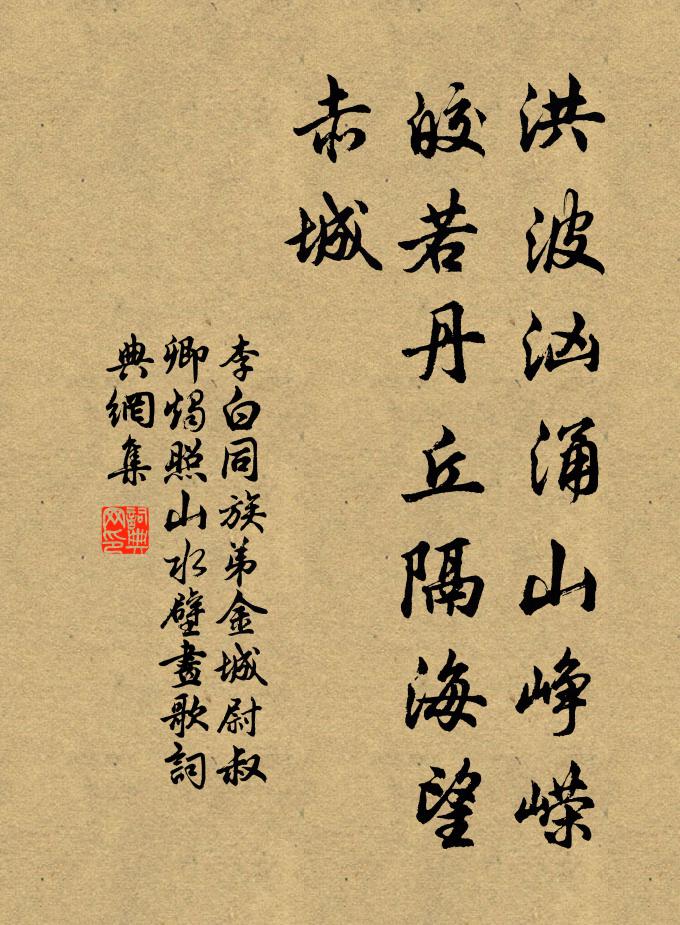 洪波汹涌山峥嵘
皎若丹丘隔海望
赤城
李白同族弟金城尉叔
卿燭照山水壁畫歌詞
典網集
詞典
网印